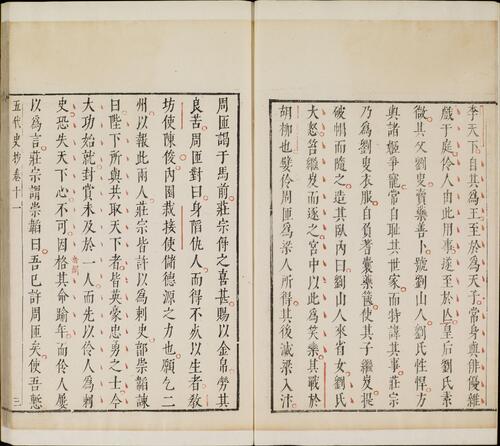 李天下自其為王至於為天子常身與俳優雜
戲于庭伶人由此用事遂至於亡皇后劉氏素
微其父劉叟賣藥善卜號劉山人劉氏性悍方
與諸姬爭寵常自恥其世家而特諱其事莊宗
乃為劉叟衣服自負蓍囊藥笈使其子繼岌提
破帽而隨之造其臥內曰劉山人來省女劉氏
大怒笞繼岌而逐之宮中以此為笑樂其戰於
胡柳也嬖伶周匝為梁人所得其後滅梁入汴
周匝謁于馬前莊宗得之喜甚賜以金帛勞其
良苦周匝對曰身陷仇人而得不死以生者教
坊使陳俊內園栽接使儲德源之力也願乞二
州以報此兩人莊宗皆許以為刺史郭崇韜諫
曰陛下所與共取天下者皆英豪忠勇之士今
大功始就封賞未及於一人而先以伶人為刺
史恐失天下心不可因格其命踰年而伶人屢
以為言莊宗謂崇韜曰吾已許周匝矣使吾慙
五代史抄卷十一 三